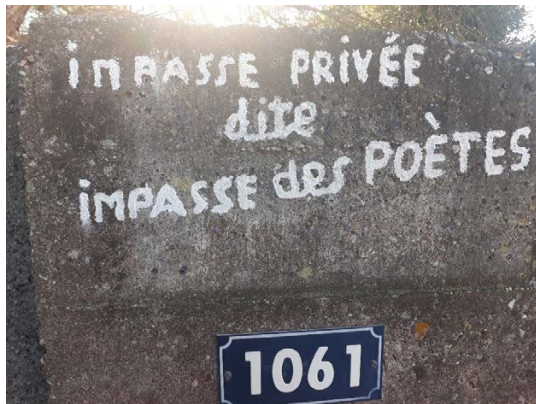 iMPASSE PRIVÉE
dite
iMPASSE des POÈTES
1061